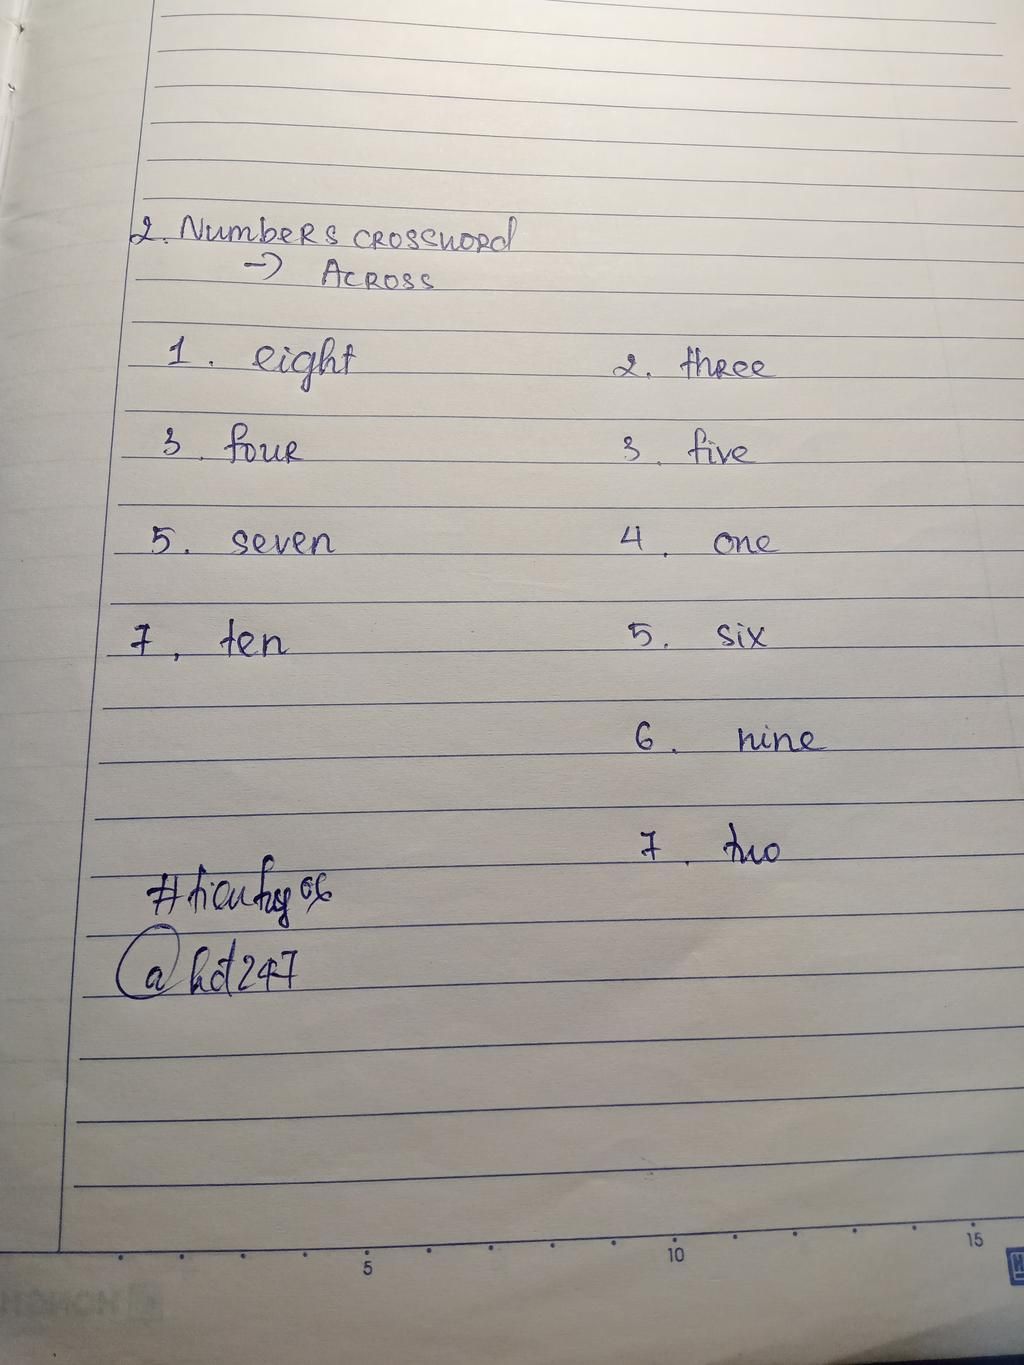 2. Numbers crossword
→ Across
1. eight 2. three
3. four 3. five
5. seven 4. one
7. ten 5. six
6. nine
7. two
@hd247
5 10 15